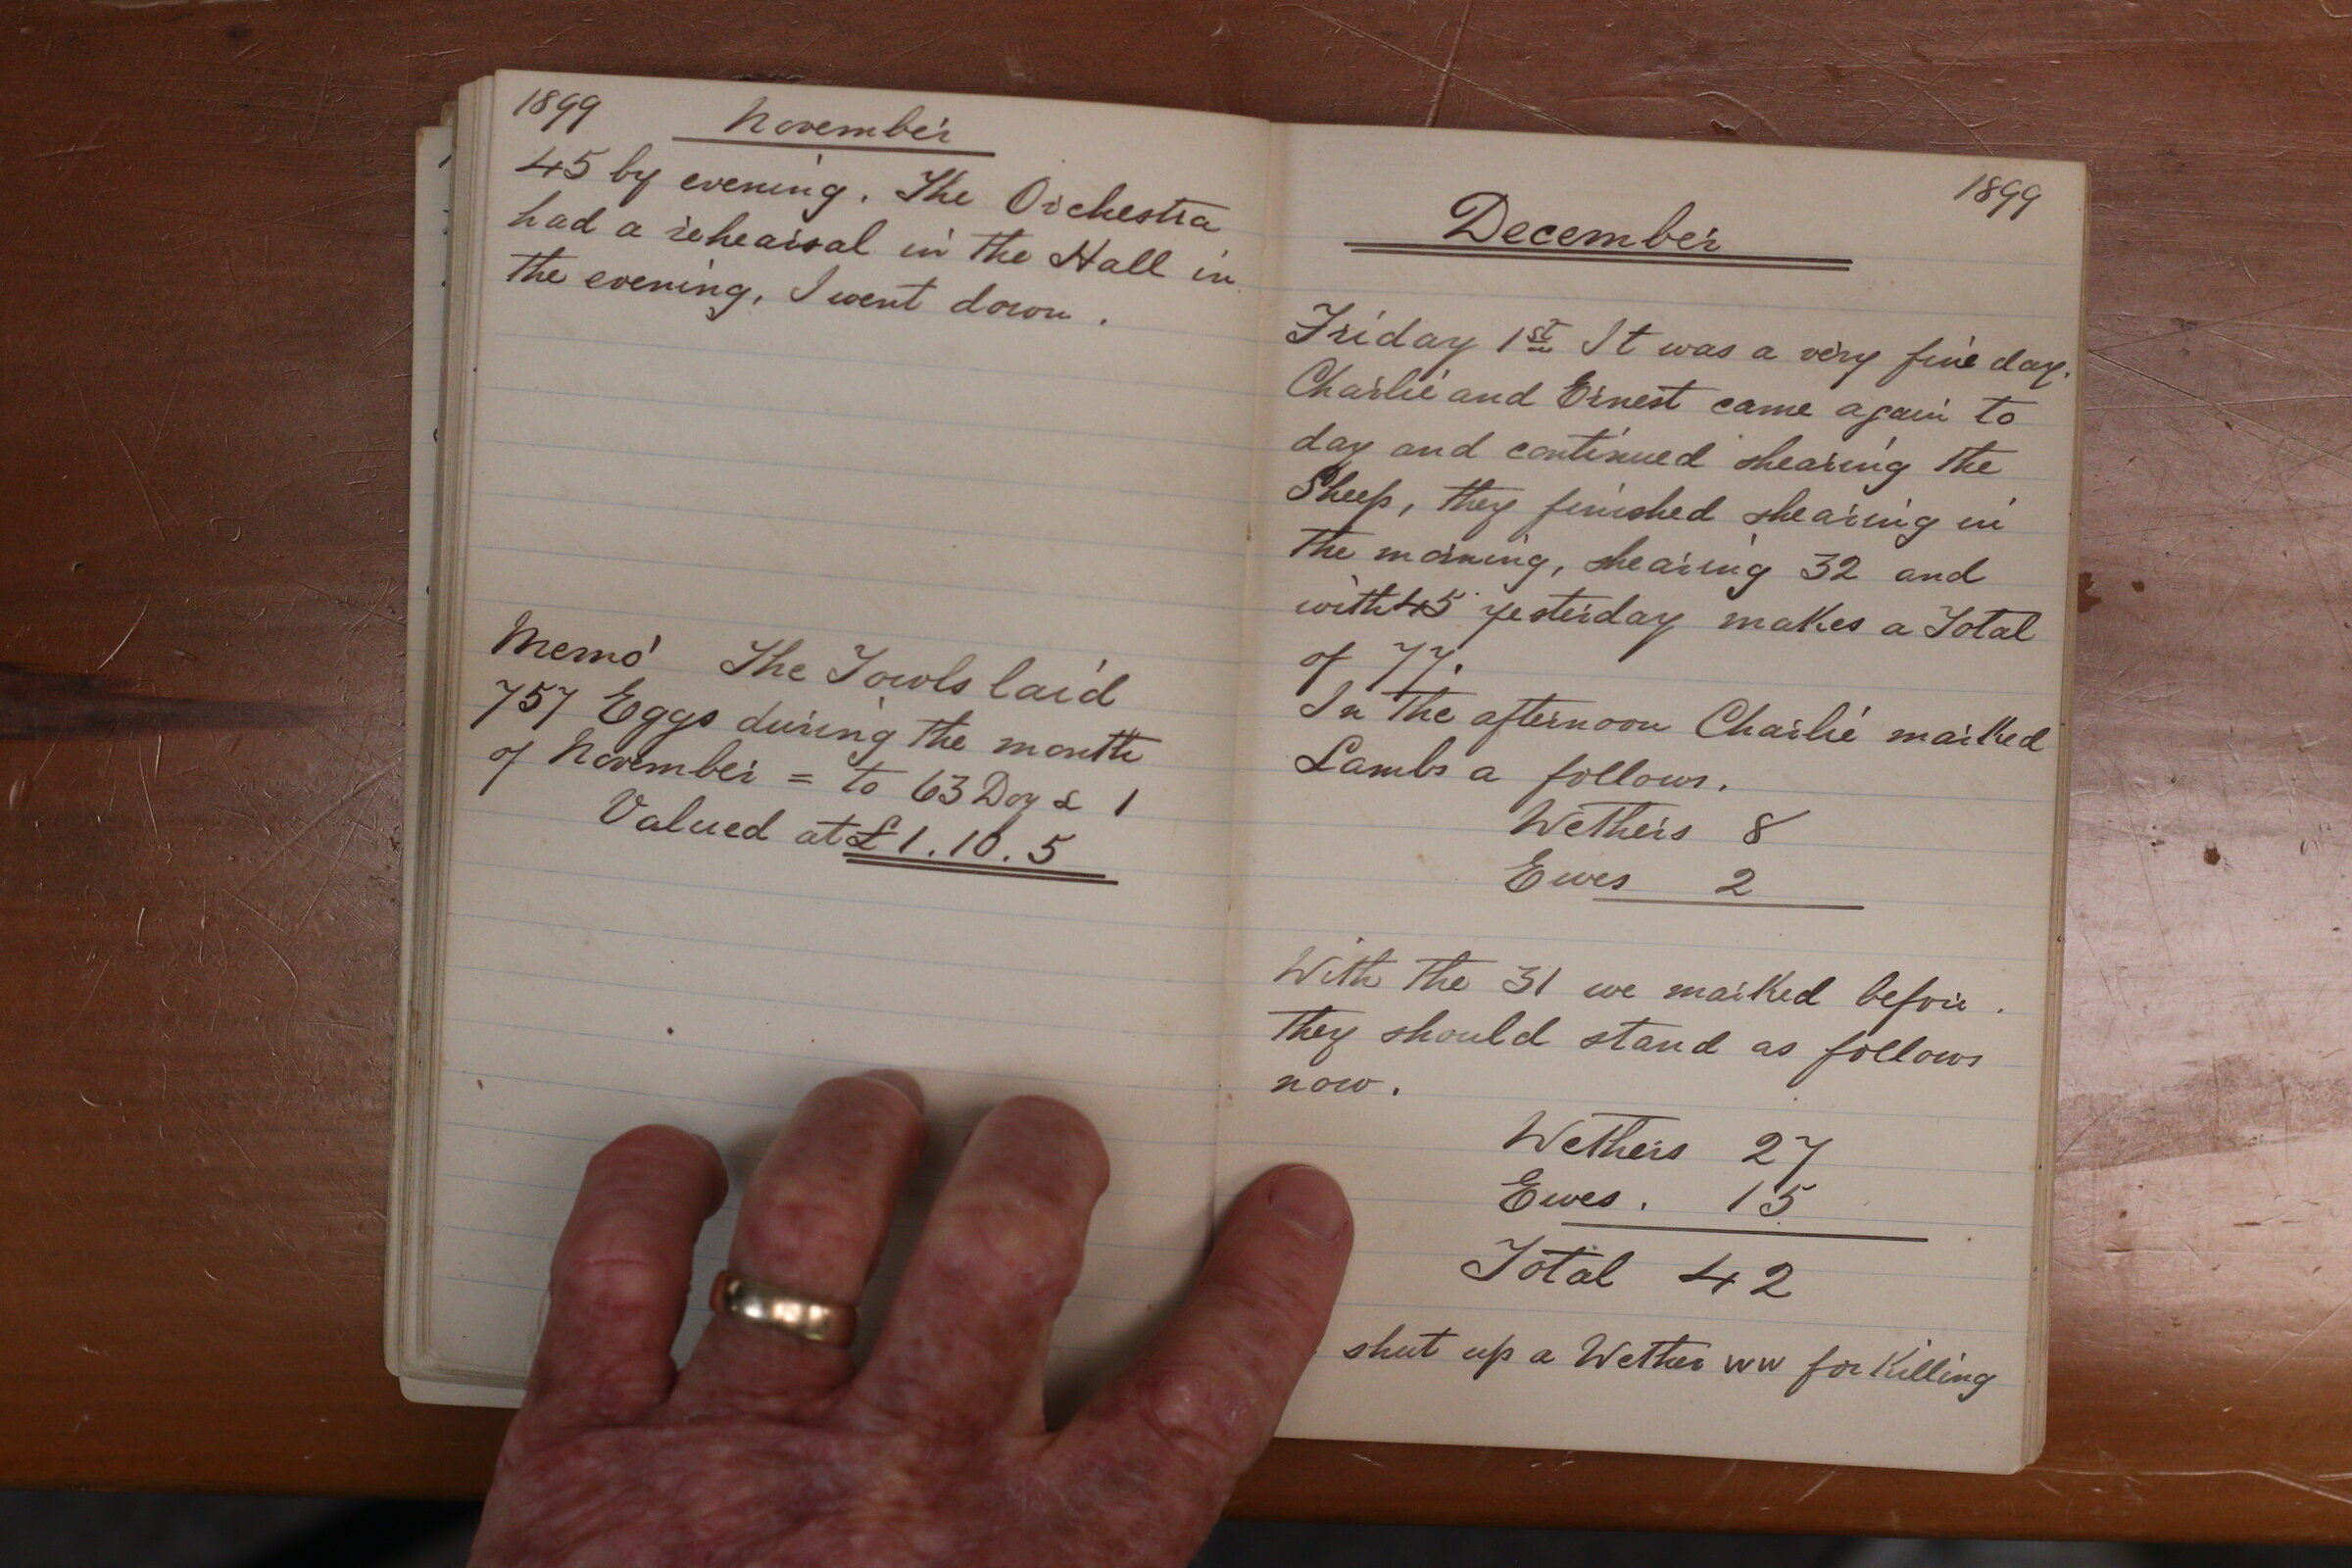 1899 November
45 by evening. The Orchestra
had a rehearsal in the Hall in
the evening, I went down.
Memo The Fowls laid
757 Eggs during the month
of November = to 63 Doz & 1
Valued at £1.10.5
1899
December
Friday 1st It was a very fine day.
Charlie and Ernest came again to
day and continued shearing the
Sheep, they finished shearing in
the morning, shearing 32 and
with 45 yesterday makes a Total
of 77.
In the afternoon Charlie marked
Lambs a follows.
Wethers 8
Ewes 2
With the 31 we marked before.
they should stand as follows
now.
Wethers 27
Ewes. 15
Total 42
shut up a Wether WW for Killing